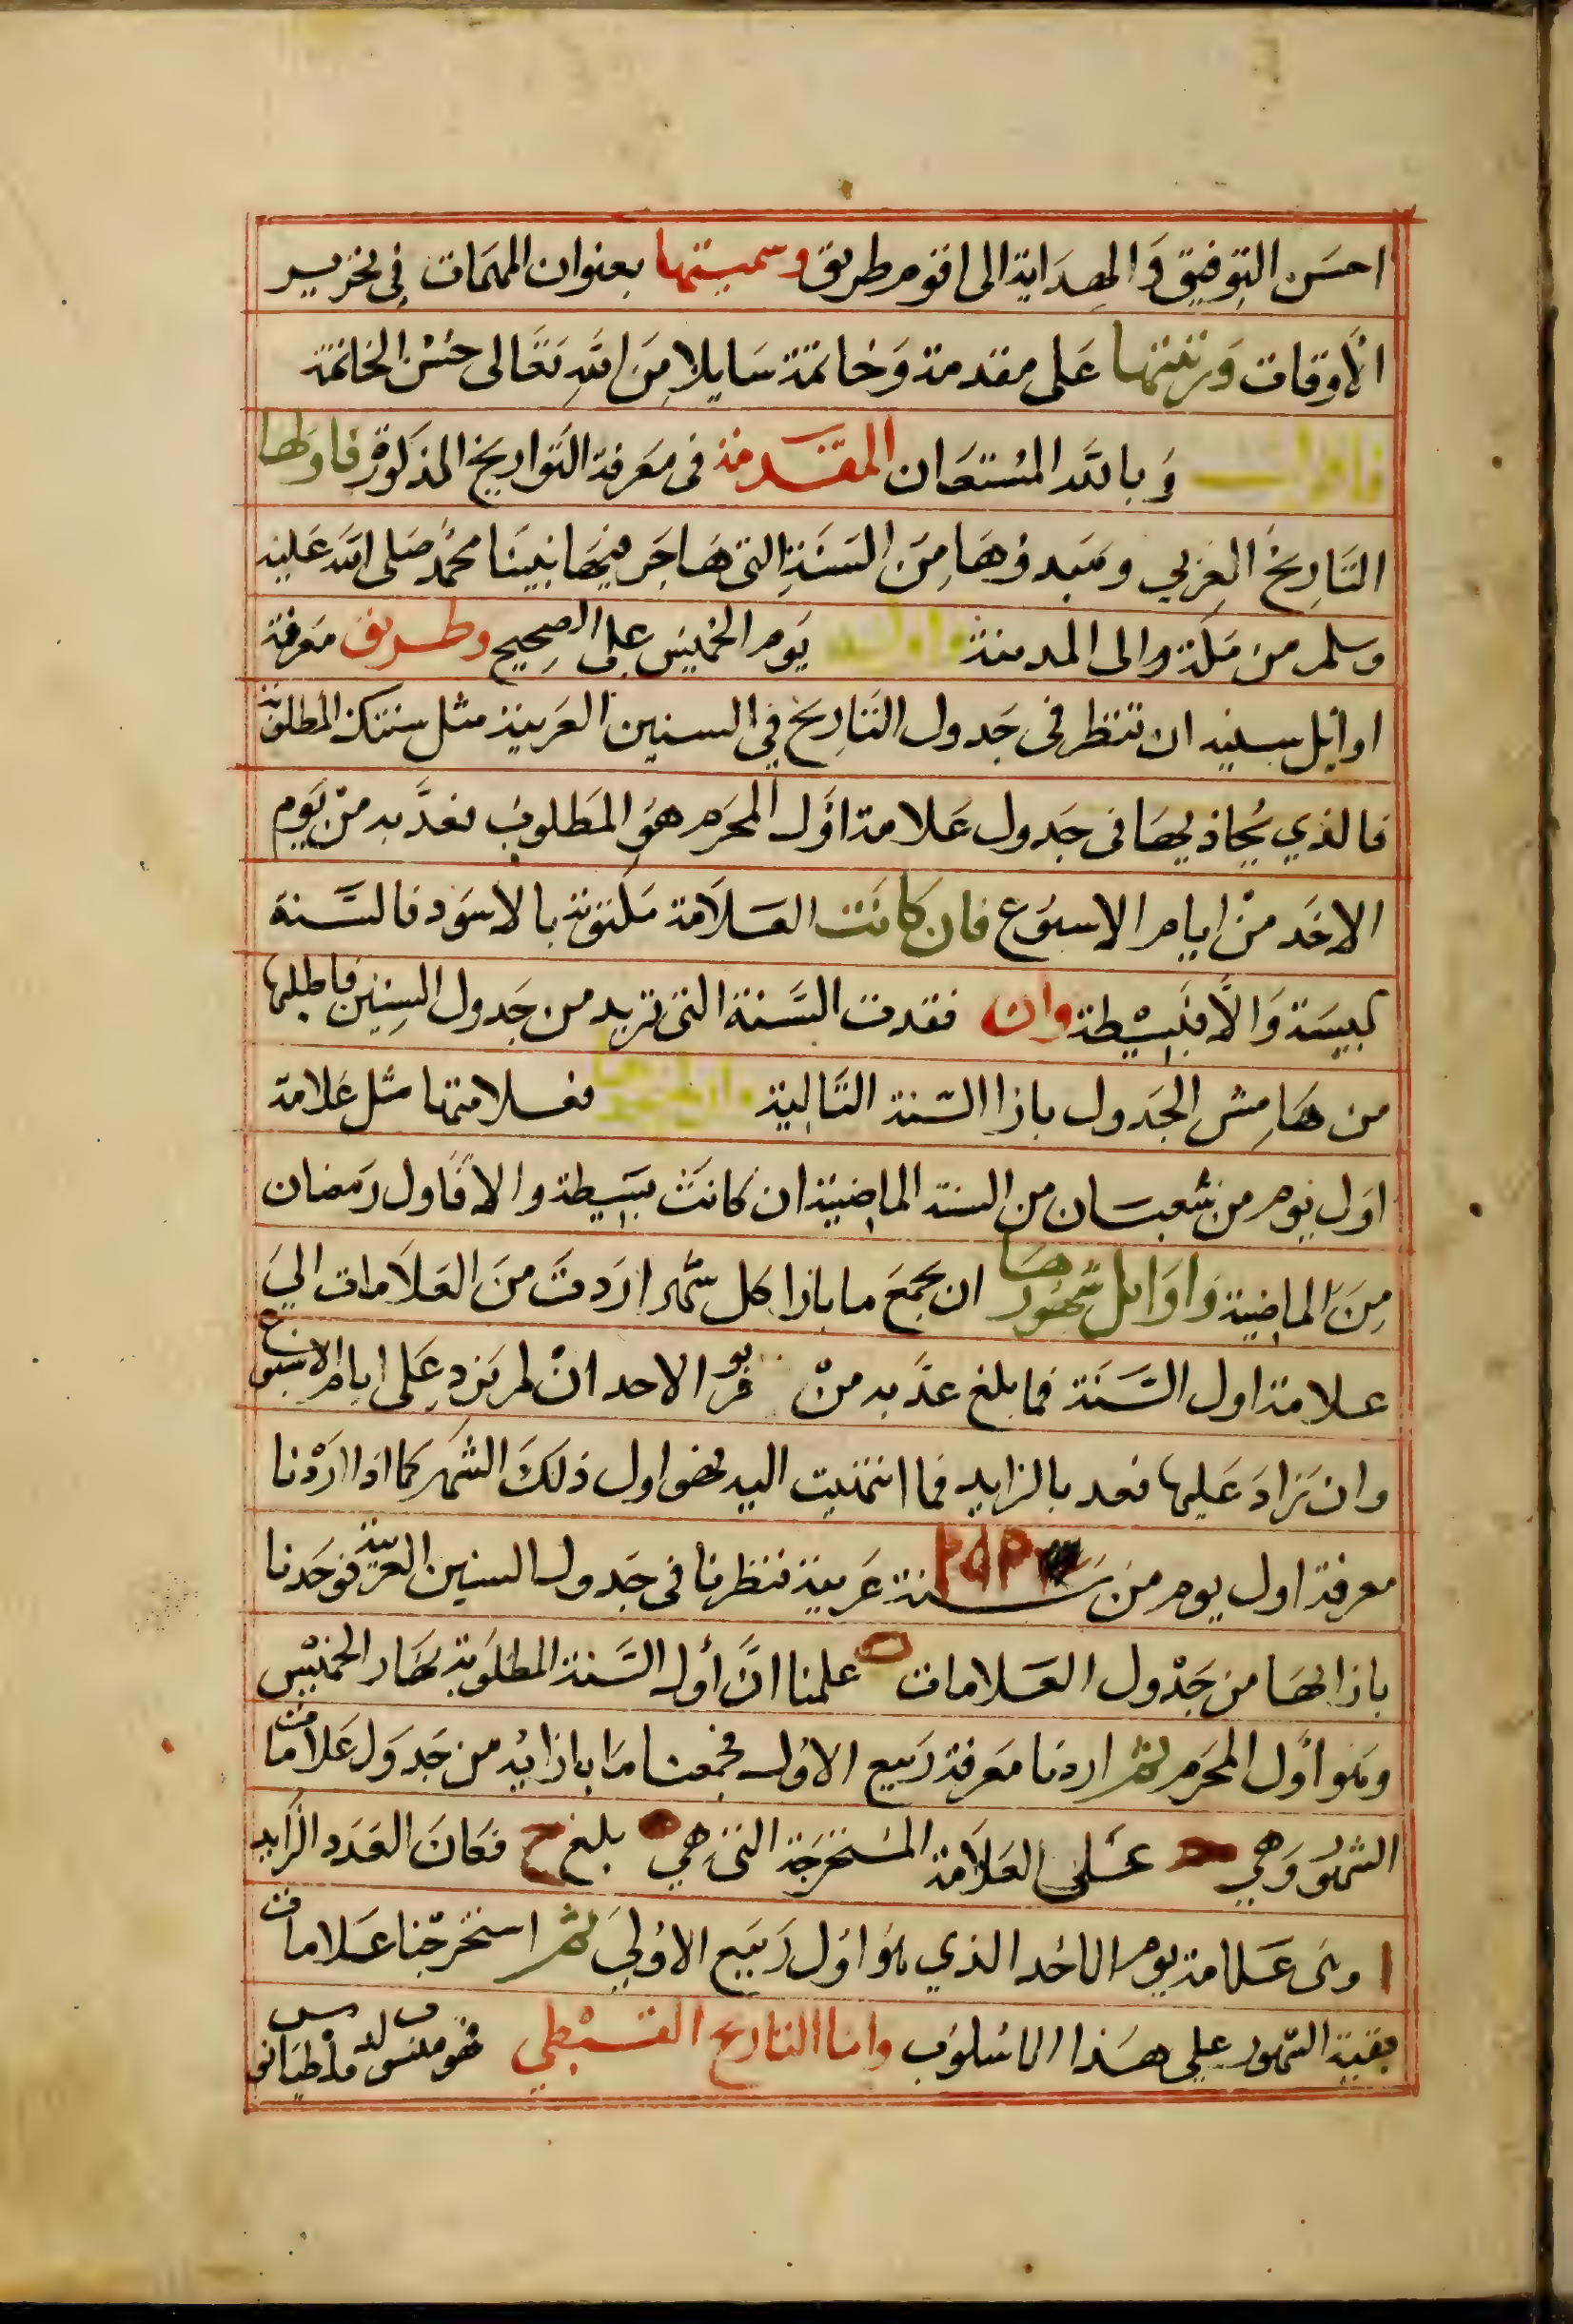 احسن التوفيق والهداية الى اقوم طريق وسميتها بعنوان المهمات في تحرير
الأوقات ورتبتها على مقدمة وخاتمة سايلا من الله تعالى حسن الخاتمة
فاقول وبالله المستعان المقدمة فى معرفة التواريخ المذكورة فاولها
التاريخ العربي ومبدؤها من السنة التى هاجر فيها نبينا محمد صلى الله عليه
وسلم من مكة والى المدينة يوم الخميس على الصحيح وطريق معرفة
اوايل سنيه ان تنظر فى جدول التاريخ في السنين العربية مثل سنتك المطلوبة
فالذي يحاذيها فى جدول علامة اول المحرم هو المطلوب فعد به من يوم
الاحد من ايام الاسبوع فان كانت العلامة مكتوبة بالاسود فالسنة
كبيسة والا فبسيطة وان فقدت السنة التى تريد من جدول السنين فاطلبها
من هامش الجدول بازا السنة التالية فعلامتها مثل علامة
اول يوم من شعبان من السنة الماضية ان كانت بسيطة والا فاول رمضان
من الماضية واوايل شهورها ان تجمع ما بازا كل شهر اردت من العلامات الي
علامة اول السنة فما بلغ عد به من يوم الاحد ان لم يزد على ايام الاسبوع
وان زاد عليها فعد بالزايد فما انتهيت اليه فهو اول ذلك الشهر كما اذا اردنا
معرفة اول يوم من سنة عربية نظرنا فى جدول السنين العربية فوجدنا
بازايها من جدول العلامات ه علمنا ان أول السنة المطلوبة نهار الخميس
وهو اول المحرم ثم اردنا معرفة ربيع الاول فجمعنا ما بازايه من جدول علامات
الشهور وهي على العلامة المستخرجة التى هي ه بلغ ح فكان العدد الزايد
ا وهى علامة يوم الاحد الذي هو اول ربيع الاول ثم استخرجنا علامات
بقية الشهور على هذا الاسلوب واما التاريخ القبطي فهو منسوب لدقلطيانوس